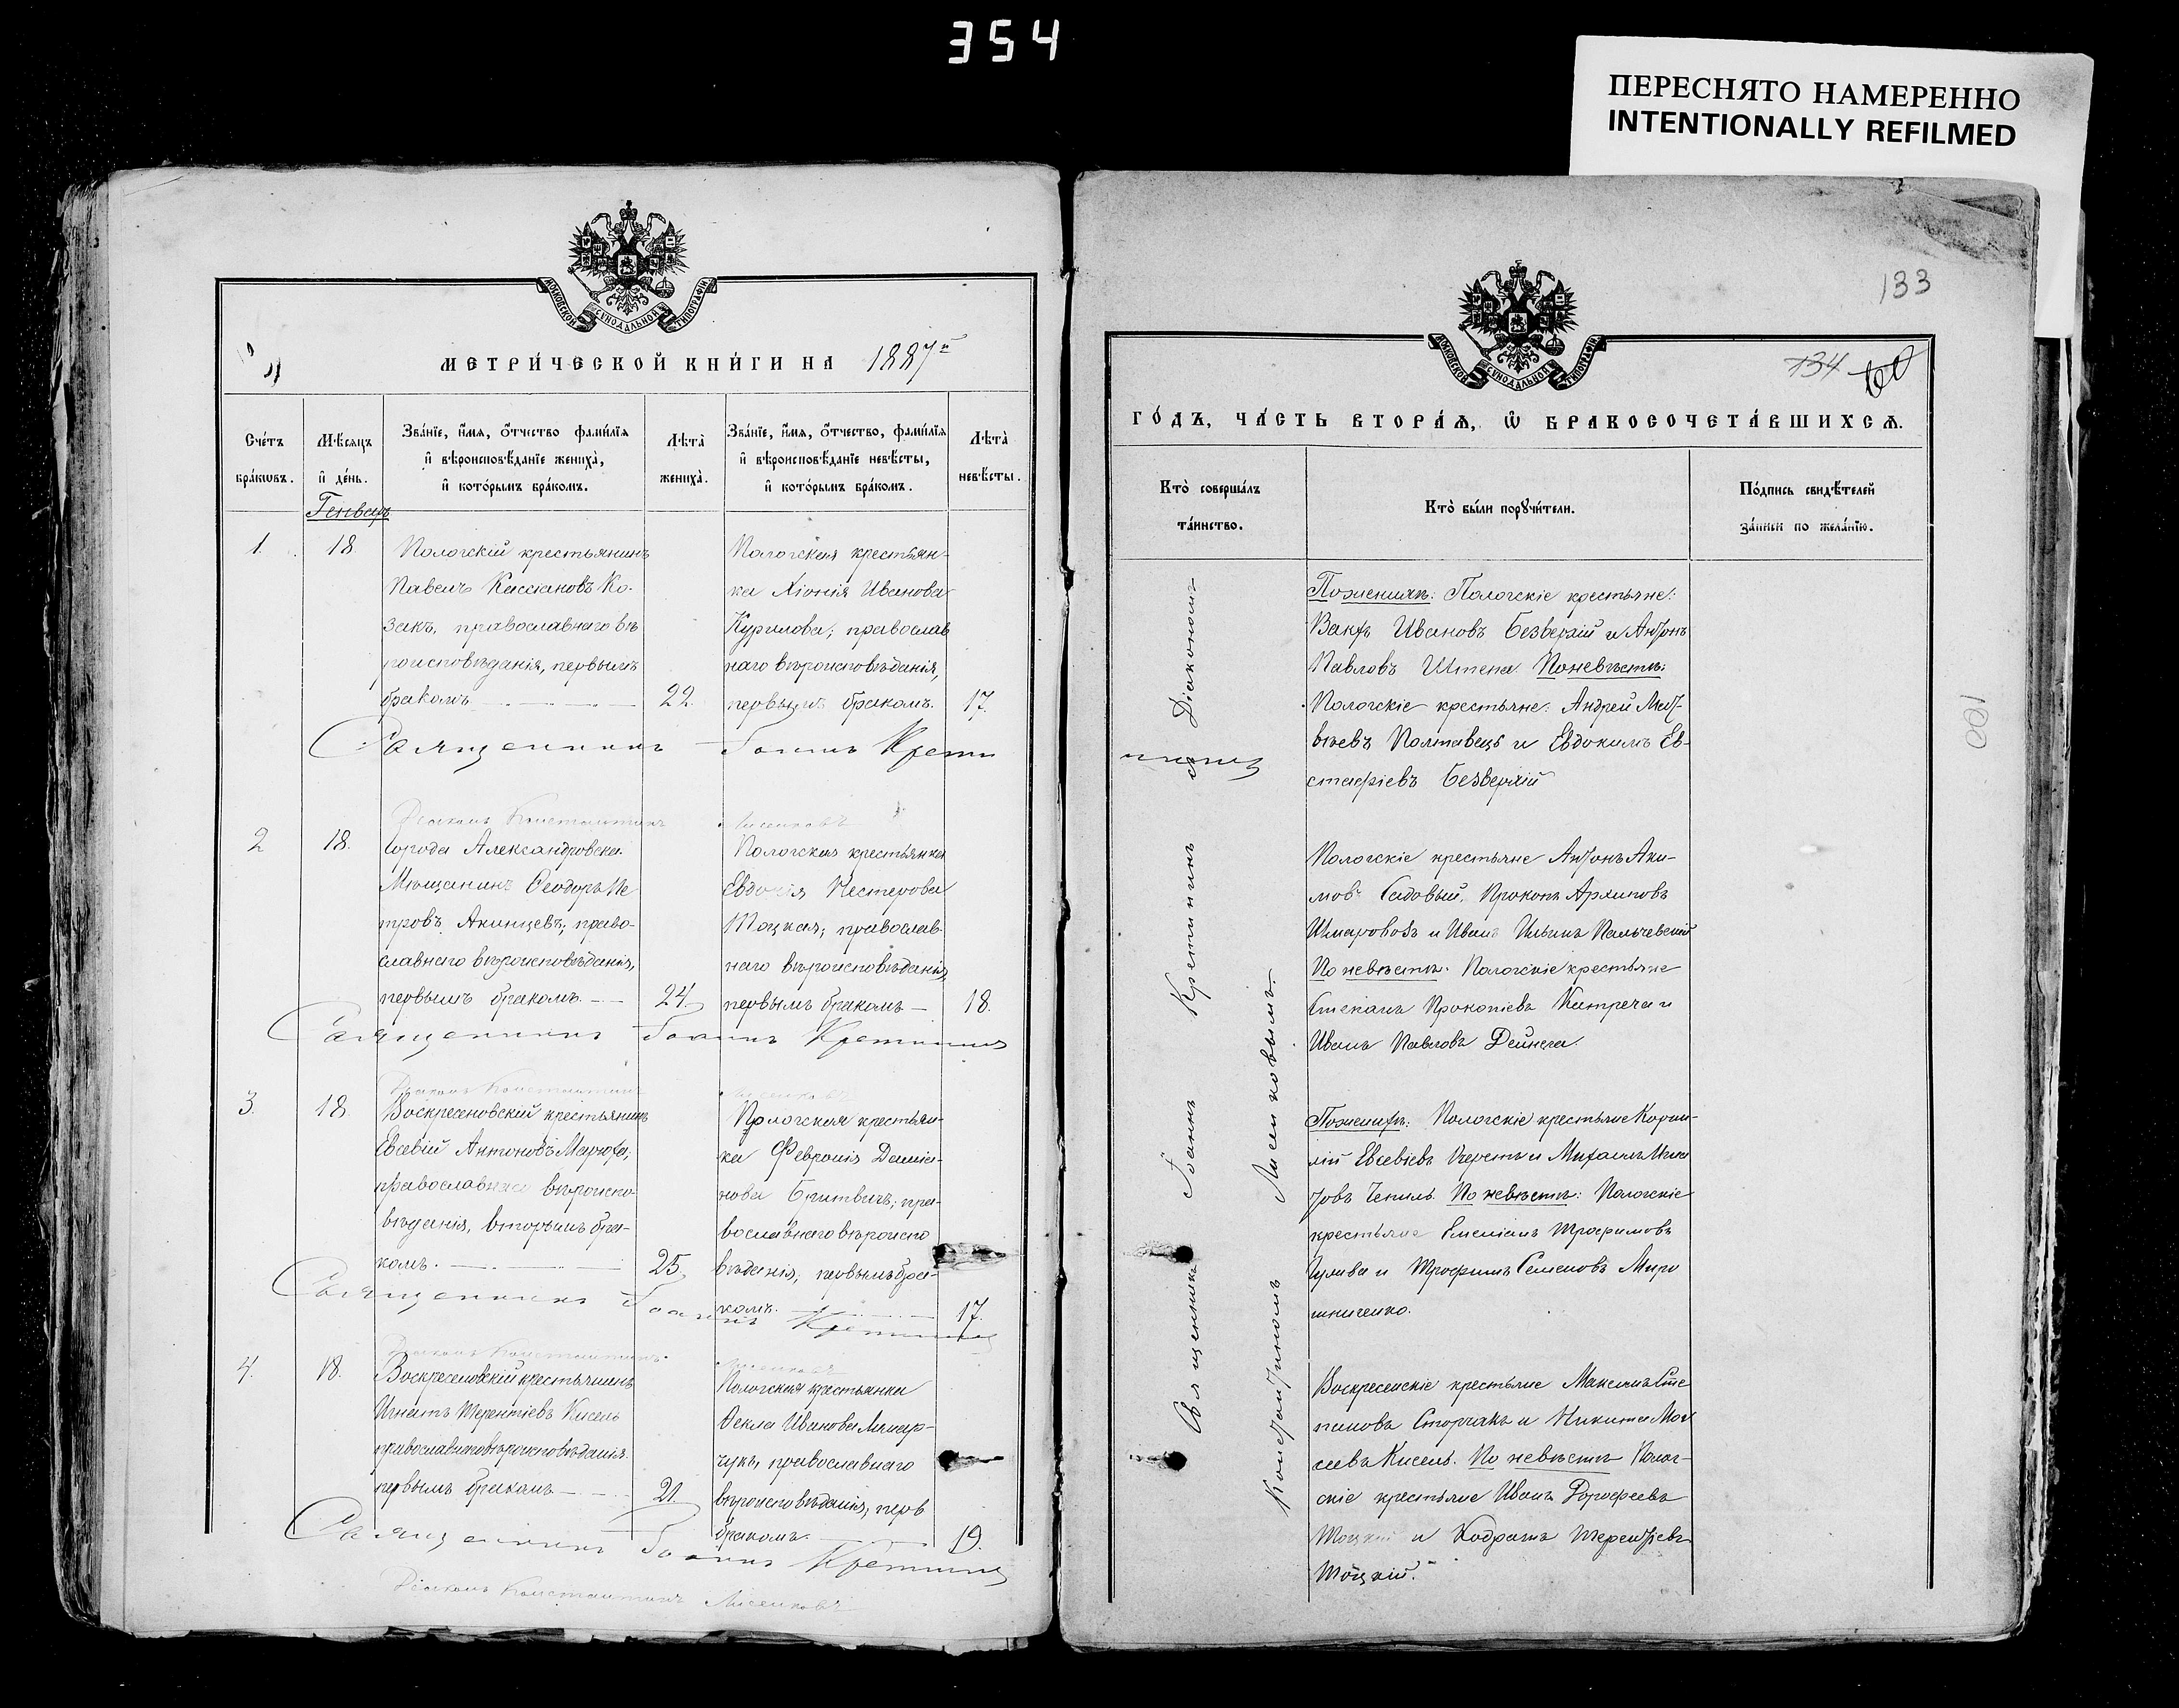 354
ПЕРЕСНЯТО НАМЕРЕННО
INTENTIONALLY REFILMED
МОСКОВСКОЙ СУНОДАЛЬНОЙ ТИПОГРАФІИ
МЕТРИ́ЧЕСКОЙ КНИ́ГИ НА 1887й
Сче́тъ бра́кѡвъ.
Мѣ́сяцъ и҆ де́нь.
Зва́нїе, и҆́мя, ѻ҆́тчество фами́лїя
и҆ вѣроисповѣ́данїе жениха̀,
и҆ кото́рымъ бра́комъ.
Лѣта̀ жениха̀.
Зва́нїе, и҆́мя, ѻ҆́тчество, фами́лїя
и҆ вѣроисповѣ́данїе невѣ́сты,
и҆ кото́рымъ бра́комъ.
Лѣта̀ невѣ́сты.
Генварь
1. 18
Пологскій крестьянинъ
Павелъ Кассіановъ Ко-
закъ, православнаго вѣ
роисповѣданія, первымъ
бракомъ 22.
Пологская крестьян-
ка Хіонія Иванова
Курилова; православ
наго вѣроисповѣданія,
первымъ бракомъ. 17.
Священникъ Іоаннъ Крети
Діаконъ Константинъ Лисенковъ
2 18.
Города Александровска
Мѣщанинъ Ѳеодоръ Пе
тровъ Акинцевъ; право-
славнаго вѣроисповѣданія,
первымъ бракомъ. 24.
Пологская крестьянка
Евдокія Нестерова
Тоцкая; православ-
наго вѣроисповѣданія,
первымъ бракомъ 18.
Священникъ Іоаннъ Кретининъ
Діаконъ Константинъ Лисенковъ
3. 18.
Воскресеновскій крестьянинъ
Евсевій Антоновъ
православнаго вѣроиспо-
вѣданія, вторымъ бра-
комъ. 25.
Пологская крестьян-
ка Февронія Даміа-
нова Бритвичъ; пра-
вославнаго вѣроиспо
вѣданія, первымъ бра-
комъ. 17.
Священникъ Іоаннъ Кретининъ
Діаконъ Константинъ Лисенковъ
4. 18.
Воскресеновскій крестьянинъ
Игнатъ Терентіевъ Кисель
православнаго вѣроисповѣданія
первымъ бракомъ 21.
Пологская крестьянка
Ѳекла Иванова Лимар-
чукъ, православнаго
вѣроисповѣданія, перв
бракомъ. 19.
Священникъ Іоаннъ Кретининъ
Діаконъ Константинъ Лисенковъ
133
134
МОСКОВСКОЙ СУНОДАЛЬНОЙ ТИПОГРАФІИ
ГО́ДЪ, ЧА́СТЬ ВТОРА́Я, Ѡ҆ БРАКОСОЧЕТА́ВШИХСЯ.
Кто̀ соверша́лъ
та́инство.
Кто̀ бы́ли порꙋчи́тели.
По́дпись свидѣ́телей
за́писи по жела́нїю.
Священникъ Іоаннъ Кретининъ съ Діакономъ
Константиномъ Лисенковымъ.
нинъ
По женихѣ: Пологскіе крестьяне:
Вакхъ Ивановъ Безверхій и Антонъ
Павловъ Штепа По невѣстѣ:
Пологскіе крестьяне: Андрей Мат-
вѣевъ Полтавецъ и Евдокимъ Ев-
стафіевъ Безверхій
Пологскіе крестьяне Антонъ Аки-
мовъ Садовый, Прокопъ Архиповъ
Шмаровозъ и Иванъ Ильинъ Пальчевскій
По невѣстѣ. Пологскіе крестьяне
Степанъ Прокопіевъ и
Иванъ Павловъ Дейнега.
По женихѣ: Пологскіе крестьяне Корни-
лій Евсевіевъ и Михаилъ
По невѣстѣ: Пологскіе
крестьяне Емеліанъ Трофимовъ
и Трофимъ Семеновъ Миро
шниченко.
Воскресенскіе крестьяне Максимъ Сте
пановъ Сторчакъ и Никита Мои
сеевъ Кисель. По невѣстѣ Полог-
скіе крестьяне Иванъ Дорофеевъ
Тоцкій и Кодратъ Терентіевъ
Тоцкій.
100